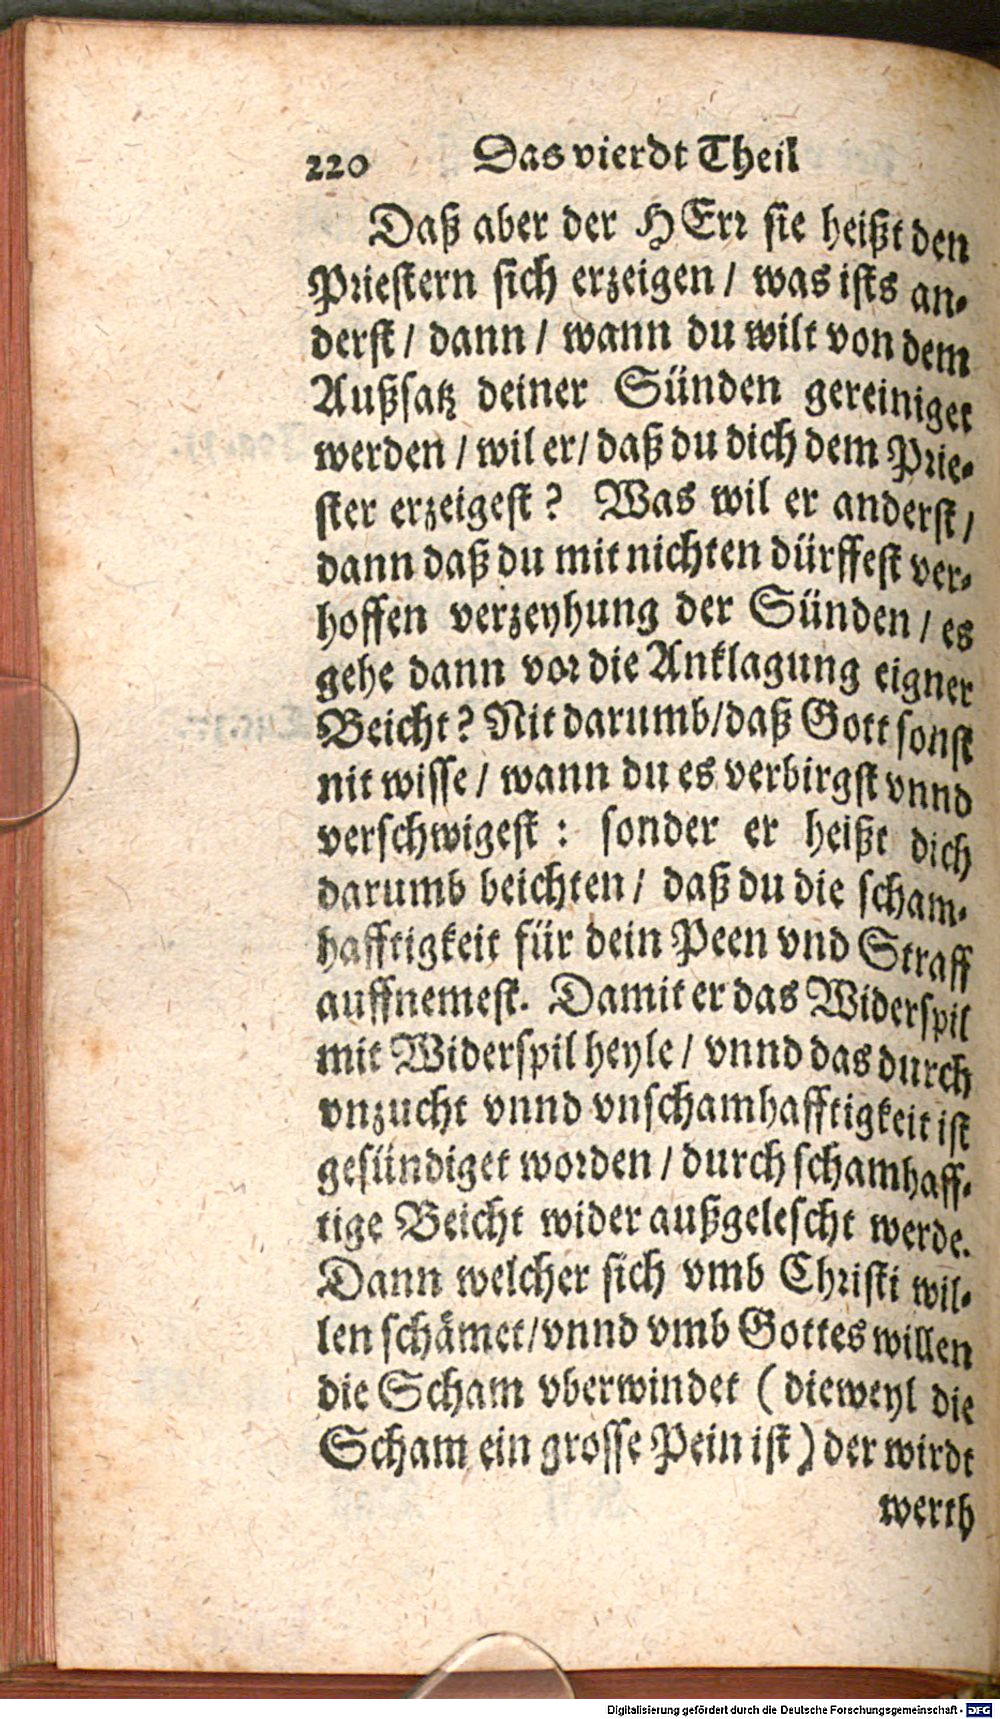 220 Das vierdt Theil
Daß aber der HErr sie heißt den
Priestern sich erzeigen / was ists an-
derst / dann / wann du wilt von dem
Außsatz deiner Sünden gereiniget
werden / wil er / daß du dich dem Prie-
ster erzeigest? Was wil er anderst /
dann daß du mit nichten dürffest ver-
hoffen verzeyhung der Sünden / es
gehe dann vor die Anklagung eigner
Beicht? Nit darumb / daß Gott sonst
nit wisse / wann du es verbirgst vnnd
verschwigest : sonder er heißt dich
darumb beichten / daß du die scham-
hafftigkeit für dein Peen vnd Straff
auffnemest. Damit er das Widerspil
mit Widerspil heyle / vnnd das durch
vnzucht vnnd vnschamhafftigkeit ist
gesündiget worden / durch schamhaff-
tige Beicht wider außgelescht werde.
Dann welcher sich vmb Christi wil-
len schämet / vnnd vmb Gottes willen
die Scham vberwindet ( dieweyl die
Scham ein grosse Pein ist ) der wirdt
werth
Digitalisierung gefördert durch die Deutsche Forschungsgemeinschaft - DFG